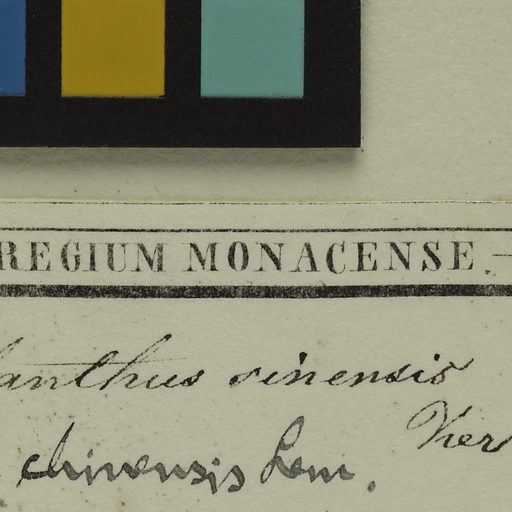 REGIUM MONACENSE.
anthus sinensis
Vier
chinensis Lam.